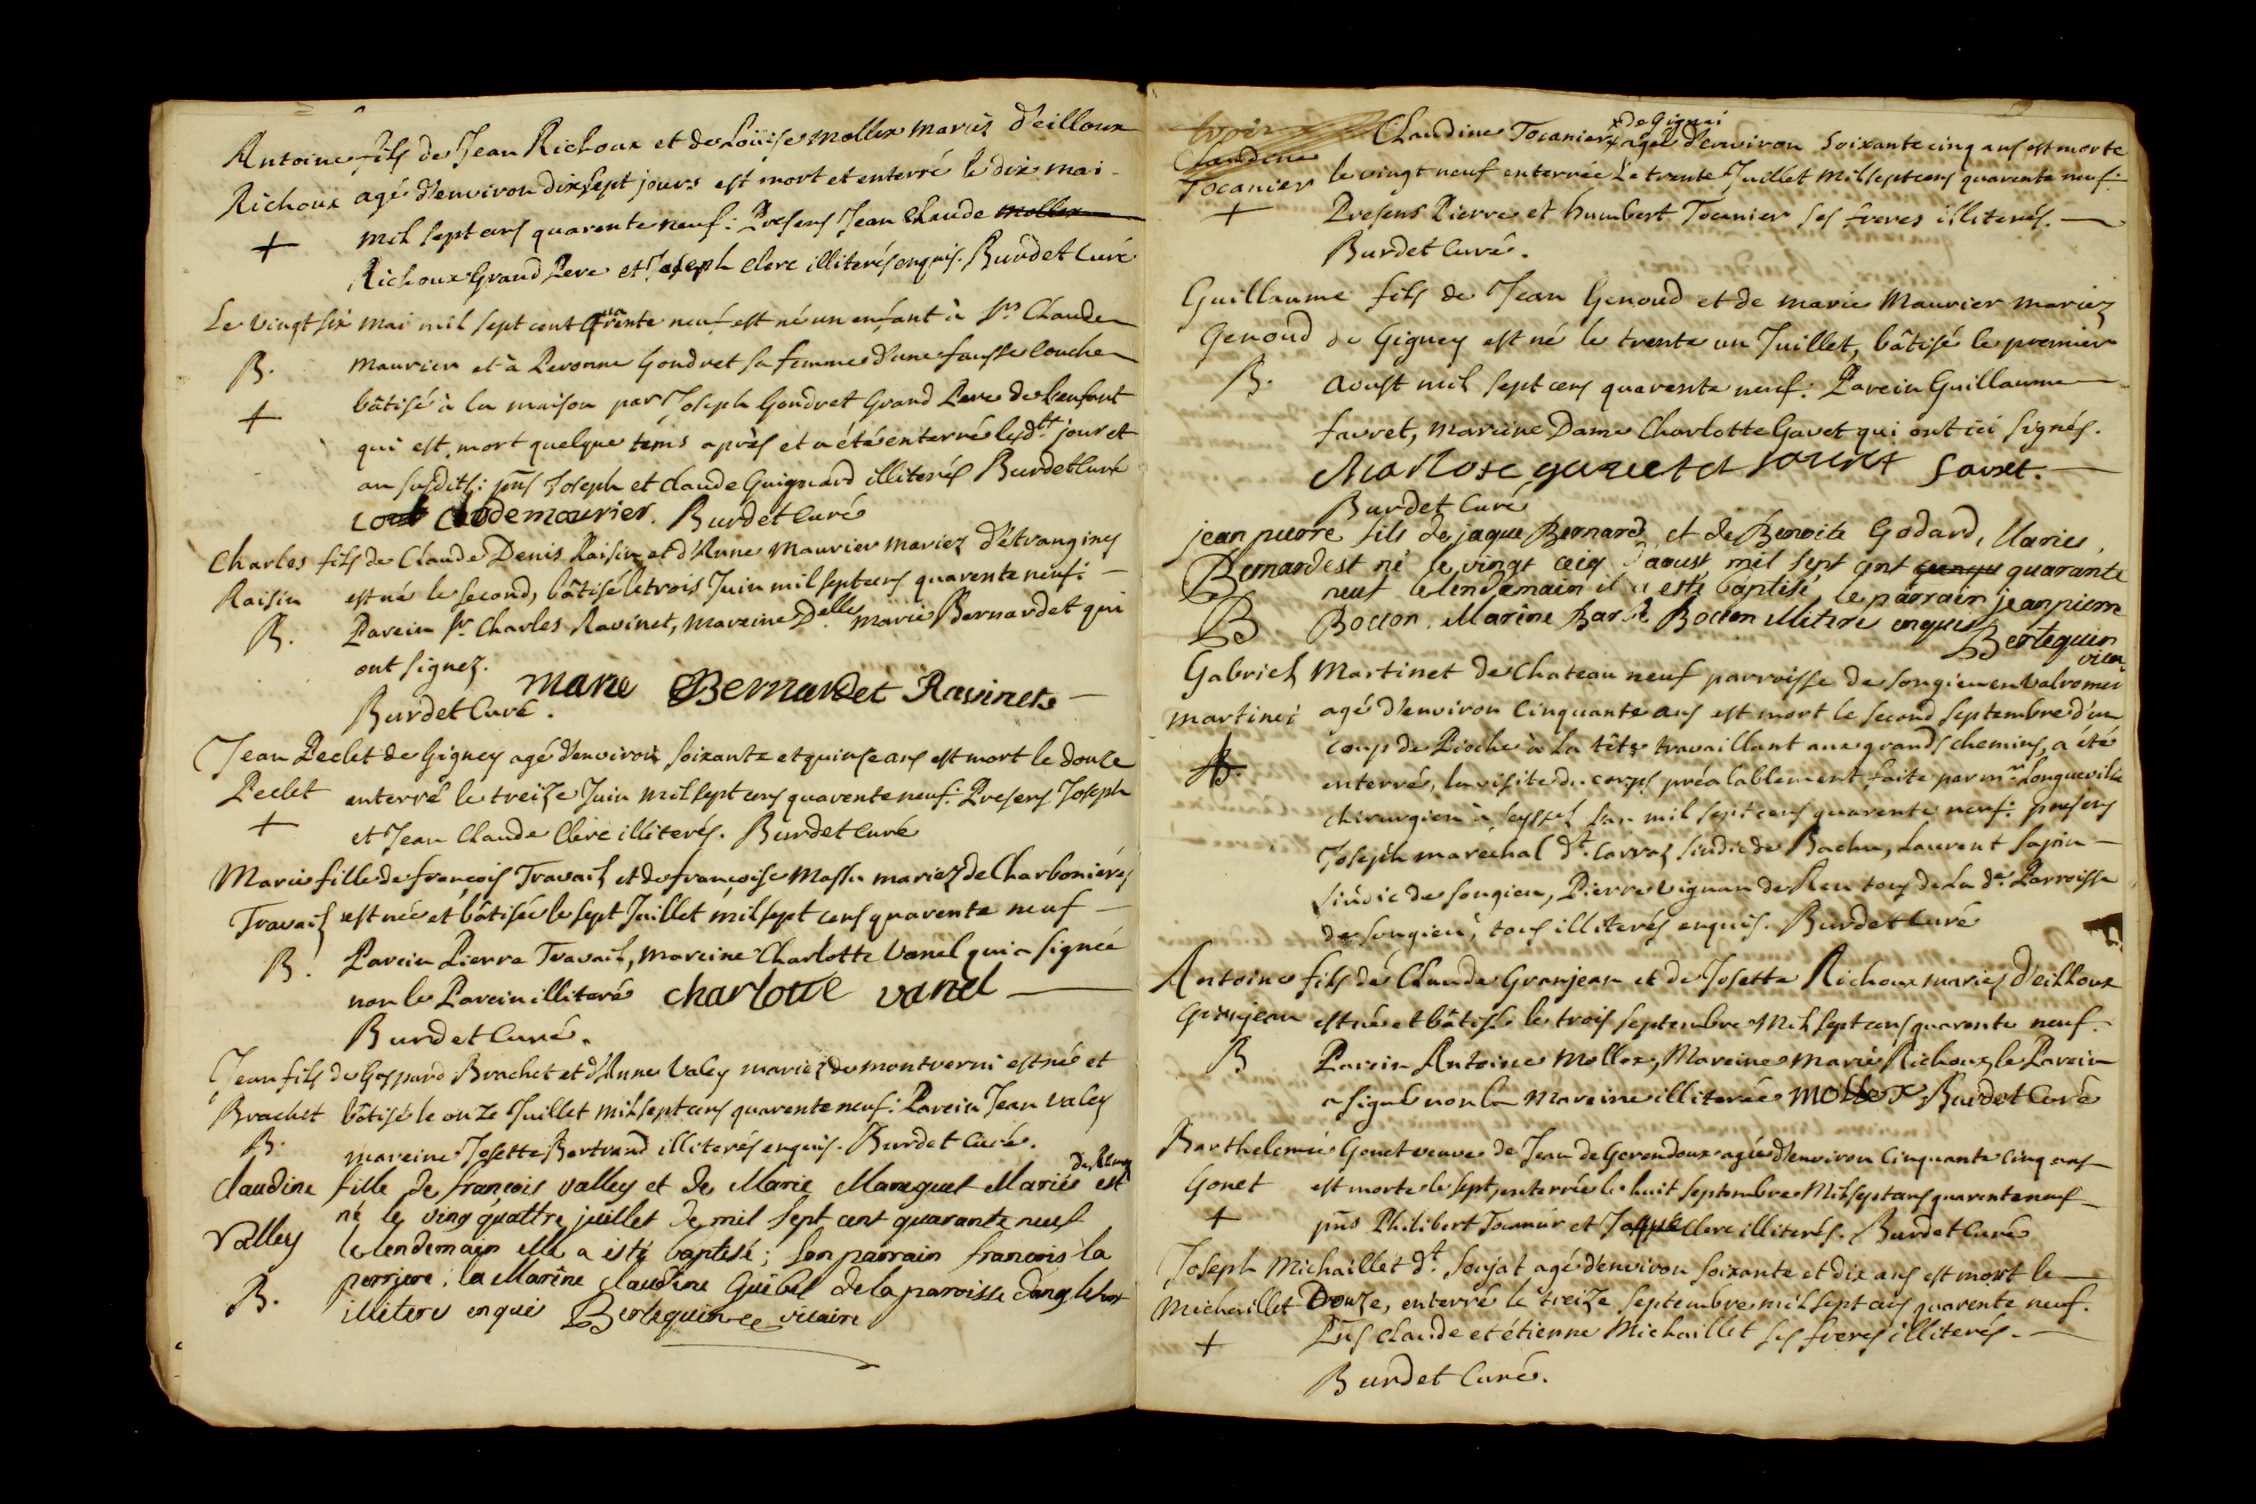 Antoine fils de Jean Richoux et de Loüise mollex mariés d'eilloux
Richoux agé d'environ dixsept jours est mort et enterré le dix mai
+ mil sept cens quarente neuf: Presens Jean Claude mollex
Richoux Grand Pere et Joseph clerc illiterés enquis. Burdet Curé
Le vingt six mai mil sept cent quarente neuf est né un enfant à sr. Claude
B. maurier et à Peronne Gondret sa femme d'une fausse couche
+ bâtisé à la maison par Joseph Gondret Grand Pere de l'enfant
qui est mort quelque téms après et a été enterré lesdts. jour et
an susdits: pns Joseph et claude Guignard illiterés Burdet Curé
claude mourier. Burdet Curé
Charles fils de Claude Denis Raisin et d'Anne maurier mariez d'étranginy
Raisin est né le second, bâtisé le trois Juin mil sept cens quarente neuf:
B. Parein sr. Charles Ravinet, mareine Delle. marie Bernardet qui
ont signez.
marie Bernardet Ravinet
Burdet Curé.
Jean Peclet de Gigney agé d'environ soixante et quinse ans est mort le douze
Peclet enterré le treize Juin mil sept cens quarente neuf: Presens Joseph
+ et Jean Claude Clerc illiterés. Burdet Curé
Marie fille de françois Travail et de françoise Massu mariez de Charboniéres
Travail est née et bâtisée le sept Juillet mil sept cens quarente neuf
B. Parein Pierre Travail, mareine Charlotte Vanel qui a signée
non le Parein illiteré charlotte vanel
Burdet Curé.
Jean fils de Gaspard Brachet et d'Anne Valey mariez de montverni est né et
Brachet bâtisé le onze Juillet mil sept cens quarente neuf: Parein Jean Valey
B. mareine Josette Bertrand illiterés enquis. Burdet Curé.
Claudine fille de françois valley et de Marie Mareguel Mariés est
né le ving quattre juillet de mil sept cent quarante neuf
Valley le lendemain elle a esté baptisé; son parrain françois la
B. perriere, la Marine Claudine Guibel de la paroisse
illitere enquis Berlequin vicaire
Claudine Tocanier de Gignei agée d'environ soixante cinq ans est morte
Claudine
Tocanier le vingt neuf enterrée Le trente Juillet mil sept cens quarente neuf:
+ Presens Pierre et humbert Tocanier ses freres illiterés.
Burdet Curé.
Guillaume fils de Jean Genoud et de marie Maurier mariez
Genoud de Gigney est né le trente un Juillet, bâtisé le premier
B. Aoust mil sept cens quarente neuf: Parein Guillaume
favret, mareine Dame Charlotte Gavet qui ont ici signés.
favret.
Burdet Curé
jean pierre fils de jaque Bernard et de Benoite Godard, Maries,
Bernard est né le vingt d'aoust mil sept cent quarante
neuf le lendemain il a esté baptisé, le parrain jean pierre
B Botton. Marine Botton illitere enquis Berlequin
vicai.
Gabriel Martinet de Chateau neuf parroisse de songieu en Valromei
martinet agé d'environ Cinquante ans est mort le second septembre d'un
coup de Pioche à la tête travaillant aux grands chemins, a été
enterré, la visite du corps préalablement faite par mr. Longueville
chirurgien à seyssel l'an mil sept cens quarente neuf: presens
Joseph marechal dt. Carraz sindic de Bachu, Laurent sapin
sindic de songieu, Pierre vignan de tous de la de. Parroisse
de songieu, tous illiterés enquis. Burdet Curé
Antoine fils de Claude Granjean et de Josette Richoux mariés d'eilloux
Granjean est né et bâtisé le trois septembre Mil sept cens quarente neuf.
B Parein Antoine Mollex, Mareine marie Richoux, le Parein
a signé non la Mareine illiterée mollex Burdet Curé
Barthelemie Gonet veuve de Jean de Gerendoux agée d'environ Cinquante cinq ans
Gonet est morte le sept, enterrée le huit septembre Mil sept cens quarente neuf
+ pns Philibert Tocanier et Jaque clerc illiterés. Burdet Curé
Joseph Michaillet dt. Soujat agé d'environ soixante et dix ans est mort le
Michaillet Douze, enterré le treize septembre mil sept cens quarente neuf.
+ Pns claude et étienne Michaillet ses freres illiterés.
Burdet Curé.